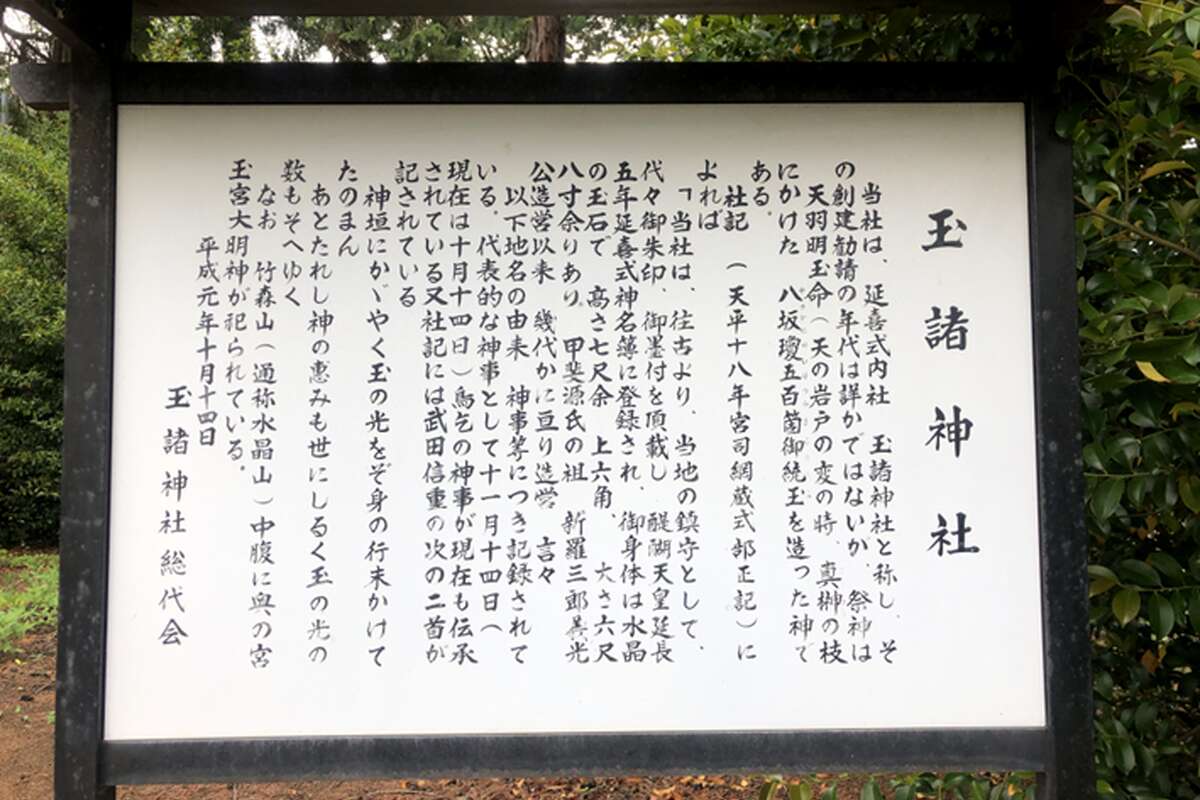 玉諸神社
当社は、延喜式内社　玉諸神社と称し、そ
の創建勧請の年代は詳かではないが、祭神は
天羽明玉命（天の岩戸の変の時、真榊の枝
にかけた　八坂瓊五百箇御統玉を造った神で
ある。
社記　（天平十八年宮司網蔵式部正記）に
よれば
「当社は、往古より、当地の鎮守として、
代々御朱印、御墨付を頂載し　醍醐天皇延長
五年延喜式神名簿に登録され、御身体は水晶
の玉石で、高さ七尺余　上六角、大さ六尺
八寸余りあり　甲斐源氏の祖　新羅三郎義光
公造営以来　幾代かに亘り造営　言々
以下地名の由来、神事等につき記録されて
いる。代表的な神事として十一月十四日（
現在は十月十四日）鳥乞の神事が現在も伝承
されている又社記には武田信重の次の二首が
記されている
神垣にかゞやく玉の光をぞ身の行末かけて
たのまん
あとたれし神の恵みも世にしるく玉の光の
数もそへゆく
なお　竹森山（通称水晶山）中腹に奥の宮
玉宮大明神が祀られている。
平成元年十月十四日
玉諸神社総代会